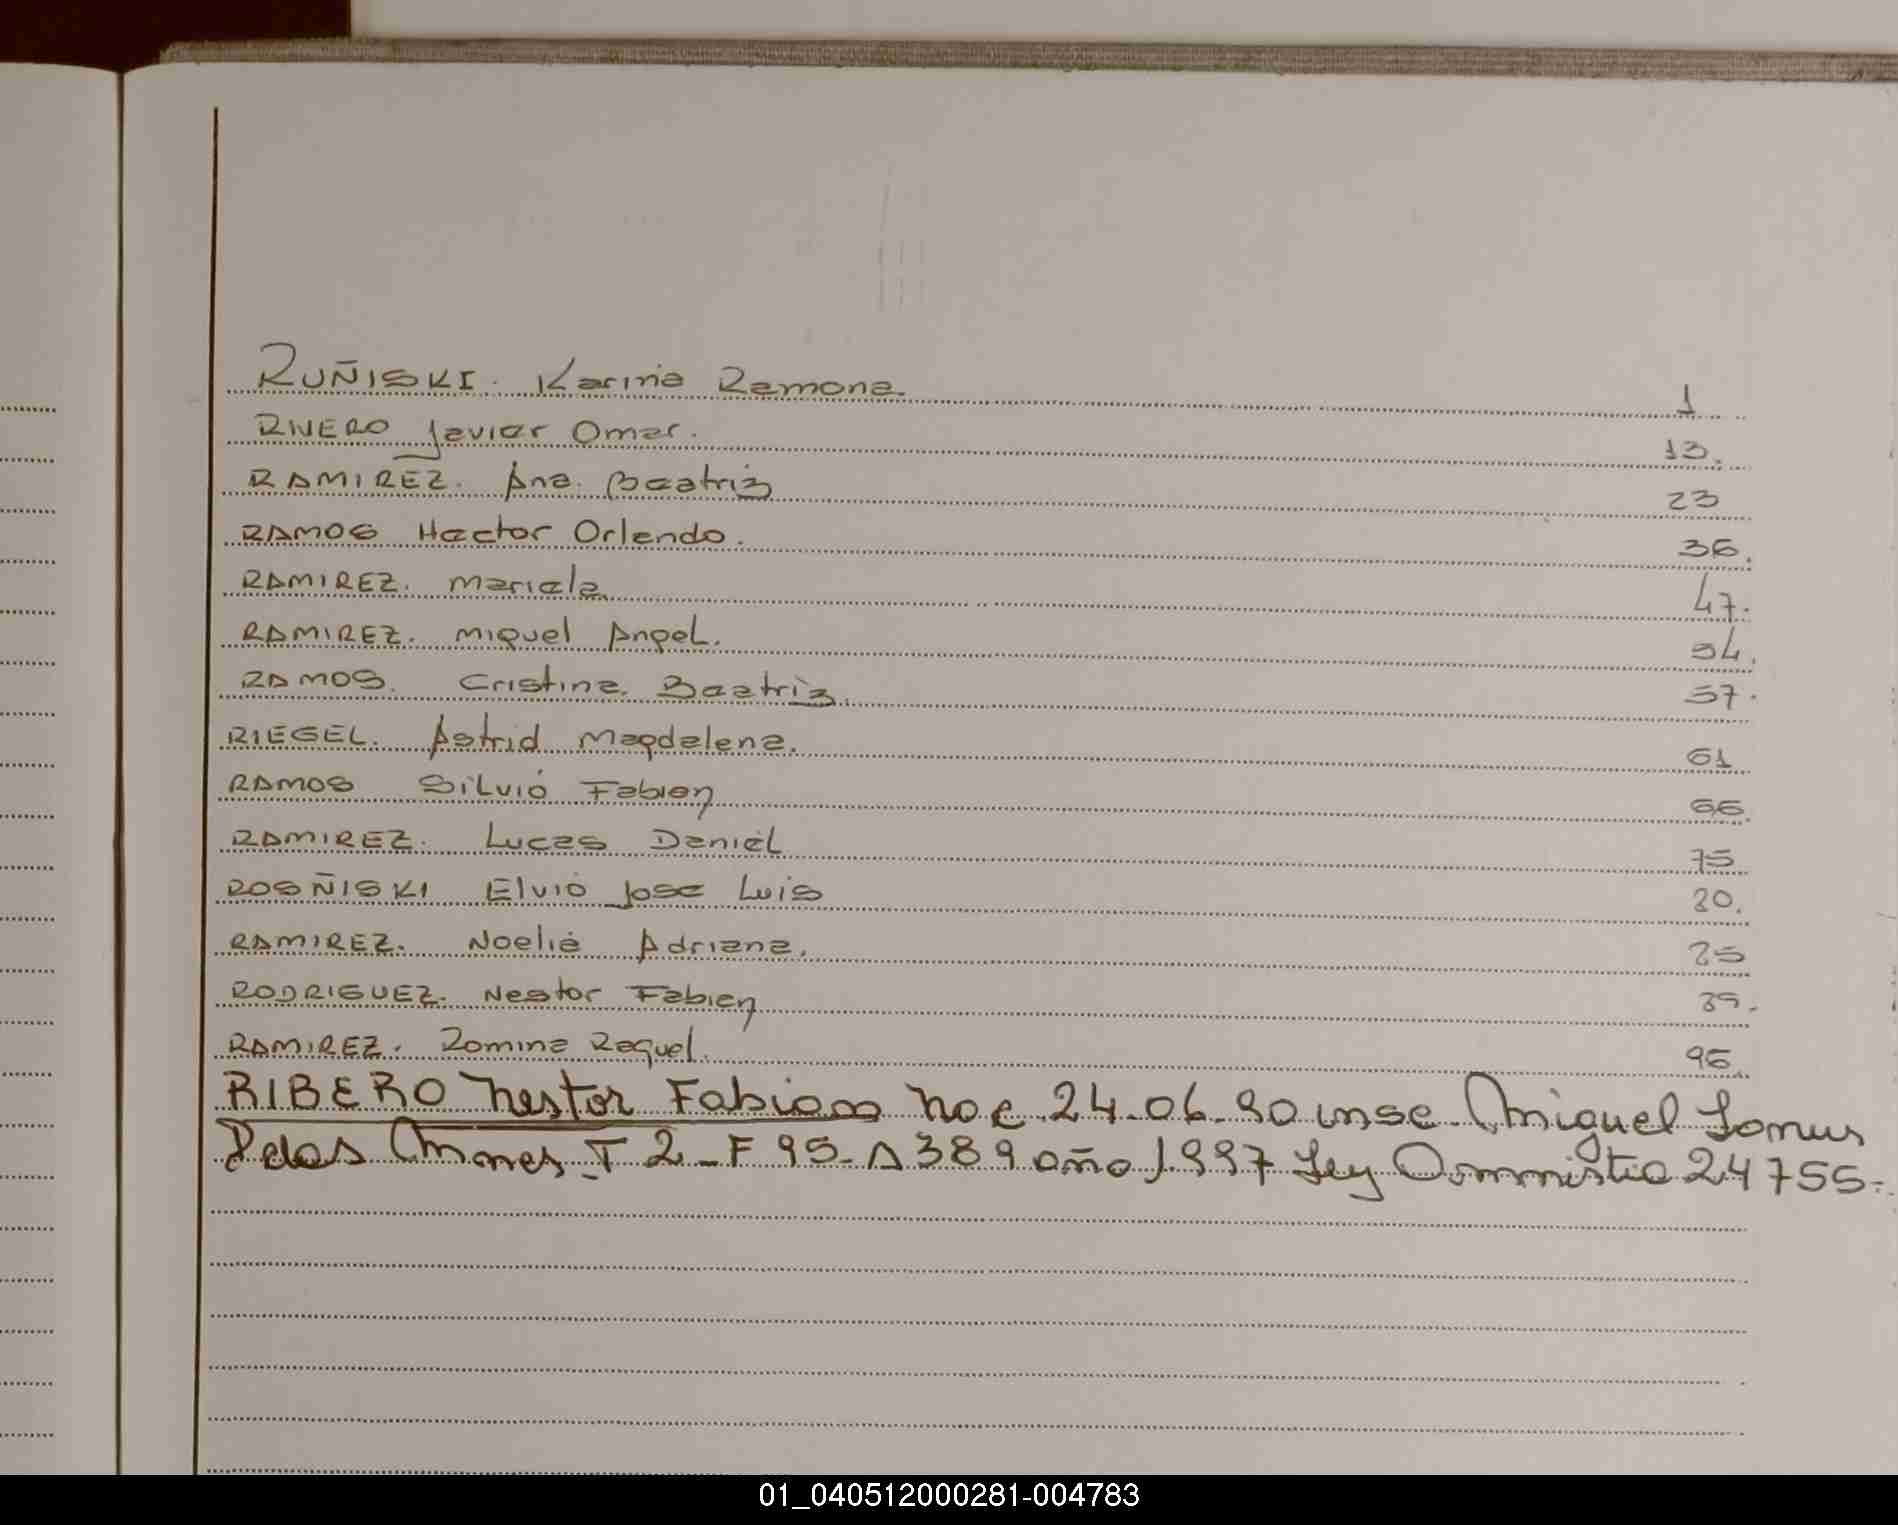 RUÑISKI. Karina Ramona. 1
RIVERO Javier Omar. 13.
RAMIREZ. Ana. Beatriz 23
RAMOS Hector Orlando. 36.
RAMIREZ. Mariela 47.
RAMIREZ. Miguel Angel. 54.
RAMOS. Cristina. Beatriz. 57.
RIEGEL. Astrid Magdalena. 61
RAMOS Silvio Fabian 66.
RAMIREZ. Lucas Daniel 75
ROSÑISKI Elvio Jose Luis 80.
RAMIREZ. Noelia Adriana. 85
RODRIGUEZ. Nestor Fabian 89.
RAMIREZ. Romina Raquel. 96.
RIBERO Nestor Fabian Nac 24-06-90 insc. Miguel
T 2-F 95-A 389 año 1.997 Ley Ammistia 24755-
01_040512000281-004783